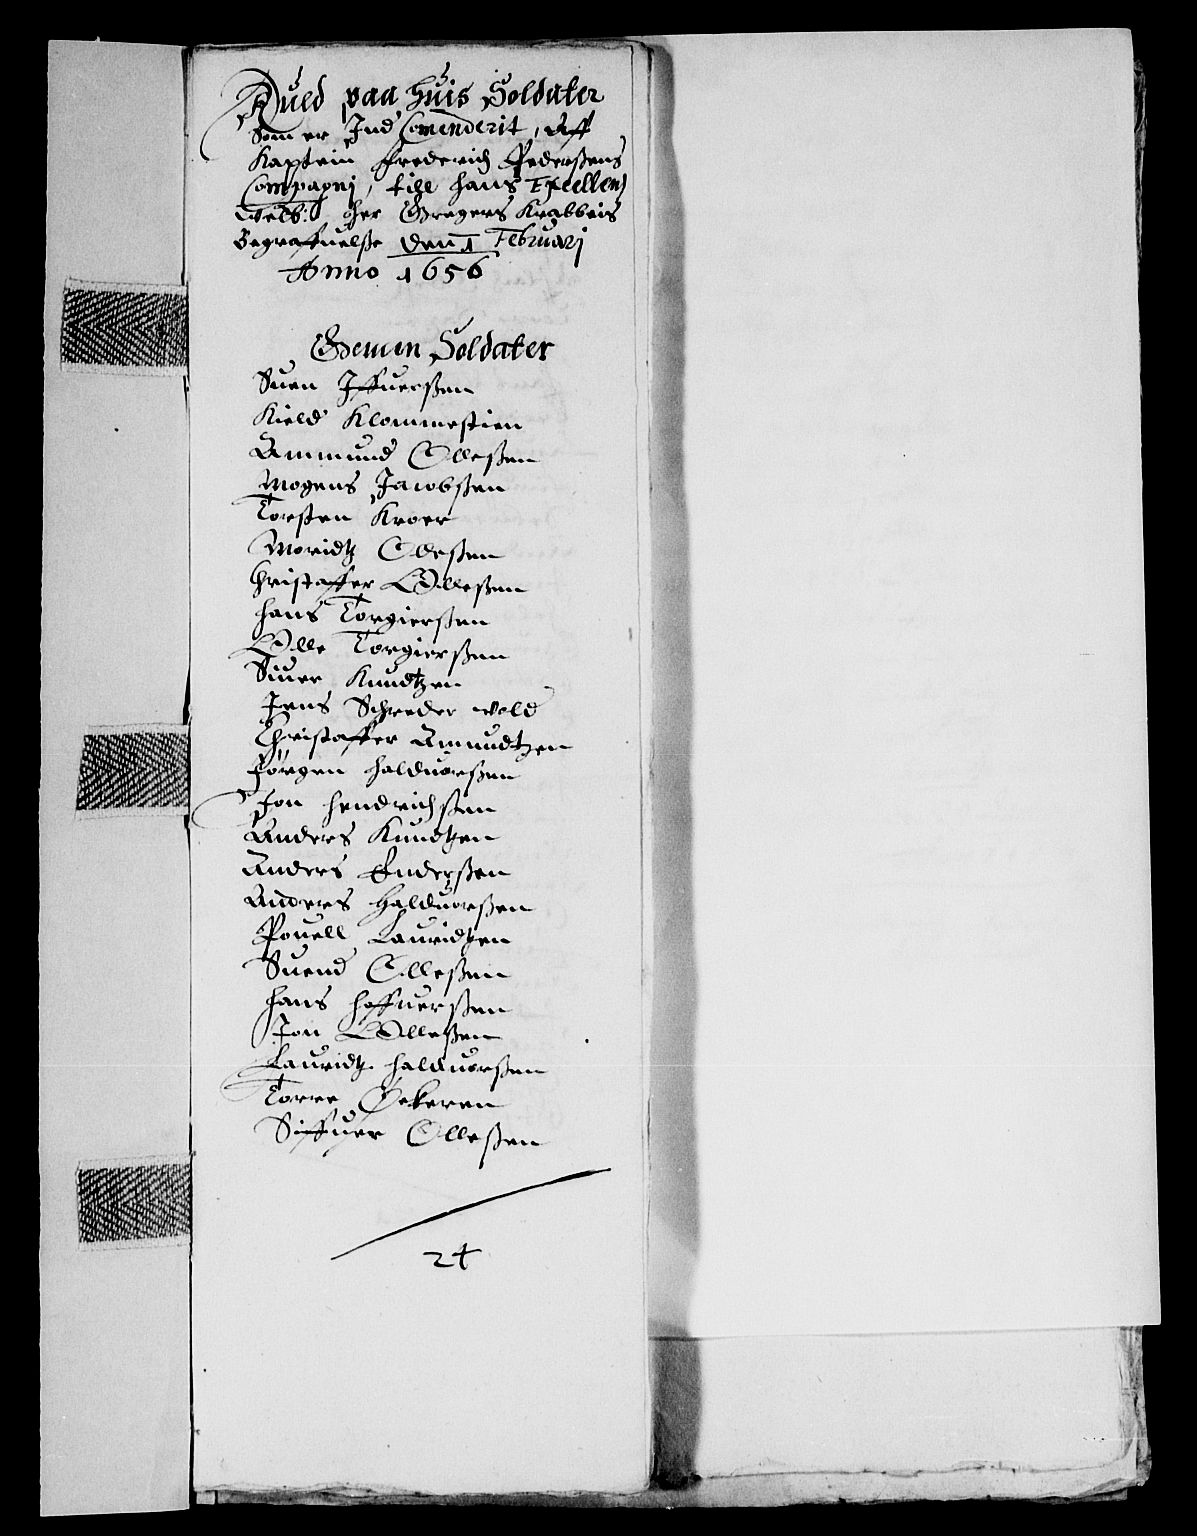 Ruld paa huis Soldater
Som er Ind Comenderit, aff
Kaptein Frederich Pederßens
Compagni, till hans Excellentz
Welb: her Gregers Krabbeis
Begraffuelße den 1 Februarj
Anno 1656
Gemen Soldater
Suen Iffuerßen
Kield Klommestien
Ammund Olleßen
Mogens Jacobßen
Torsten Kroer
Moridtz Olleßen
Christaffer Olleßen
hans Torgierßen
Olle Torgierßen
Siuer Knudtzen
Jens Schreder wold
Christaffer Amundtzen
Jørgen halduorßen
Jon hendrichßen
Anders Knudtzen
Anders Enderßen
Anders Halduorßen
Pouell Lauridtzen
Suend Olleßen
hans hoffuerßen
Jon Olleßen
Lauridtz halduorßen
Torre Øekeren
Siffuer Olleßen
24